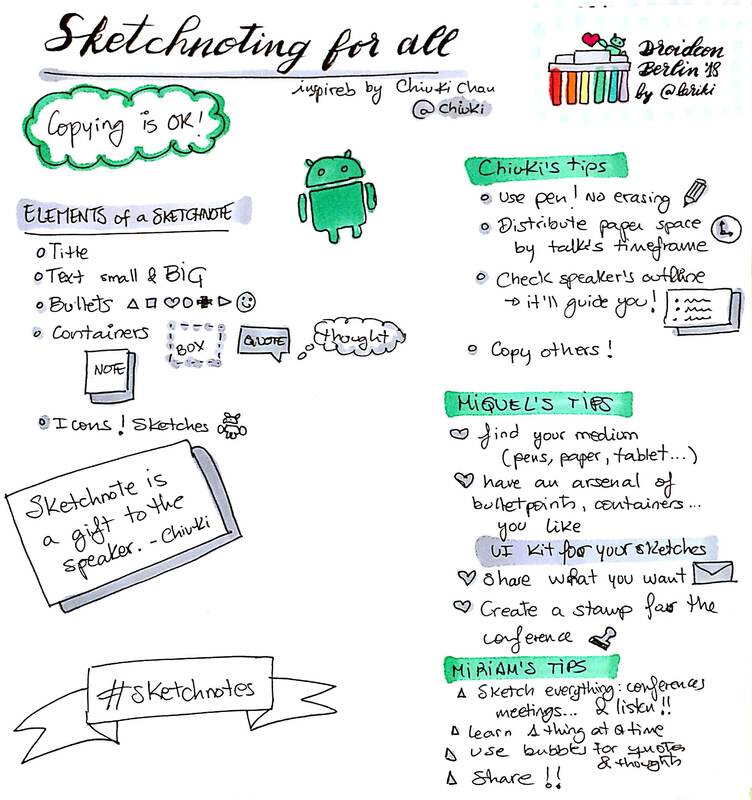 Sketchnoting for all
inspired by Chiuki Chau
@chiuki
Droidcon
Berlin '18
by @lariki
Copying is OK!
ELEMENTS of a SKETCHNOTE
Title
Text small & BIG
Bullets
Containers
BOX
QUOTE
thought
NOTE
Icons! Sketches
Sketchnote is
a gift to the
speaker. - Chiuki
#Sketchnotes
Chiuki's tips
Use pen! No erasing
Distribute paper space
by talk's timeframe
Check speaker's outline
→ it'll guide you!
Copy others!
MIQUEL'S TIPS
find your medium
(pens, paper, tablet...)
have an arsenal of
bulletpoints, containers...
you like
UI kit for your sketches
Share what you want
Create a stamp for the
conference
MIRIAM'S TIPS
Sketch everything: conferences
meetings... & listen!!
Learn 1 thing at a time
Use bubbles for quotes
& thoughts
Share!!